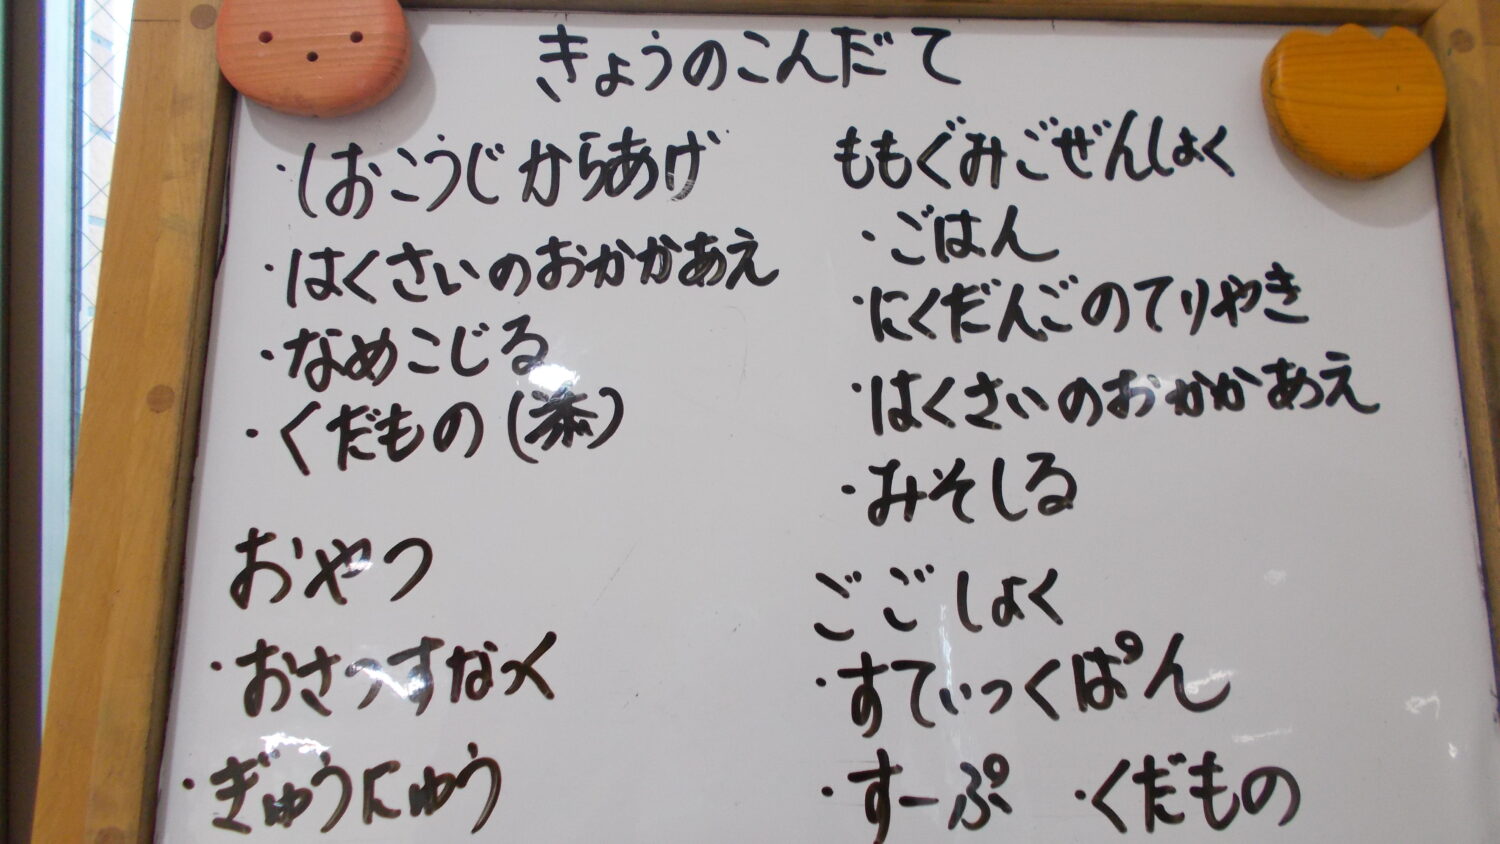 きょうのこんだて
・しおこうじからあげ
・はくさいのおかかあえ
・なめこじる
・くだもの ( )
おやつ
・おさっすなっく
・ぎゅうにゅう
ももぐみごぜんしょく
・ごはん
・にくだんごのてりやき
・はくさいのおかかあえ
・みそしる
ごごしょく
・すてぃっくぱん
・すーぷ ・くだもの